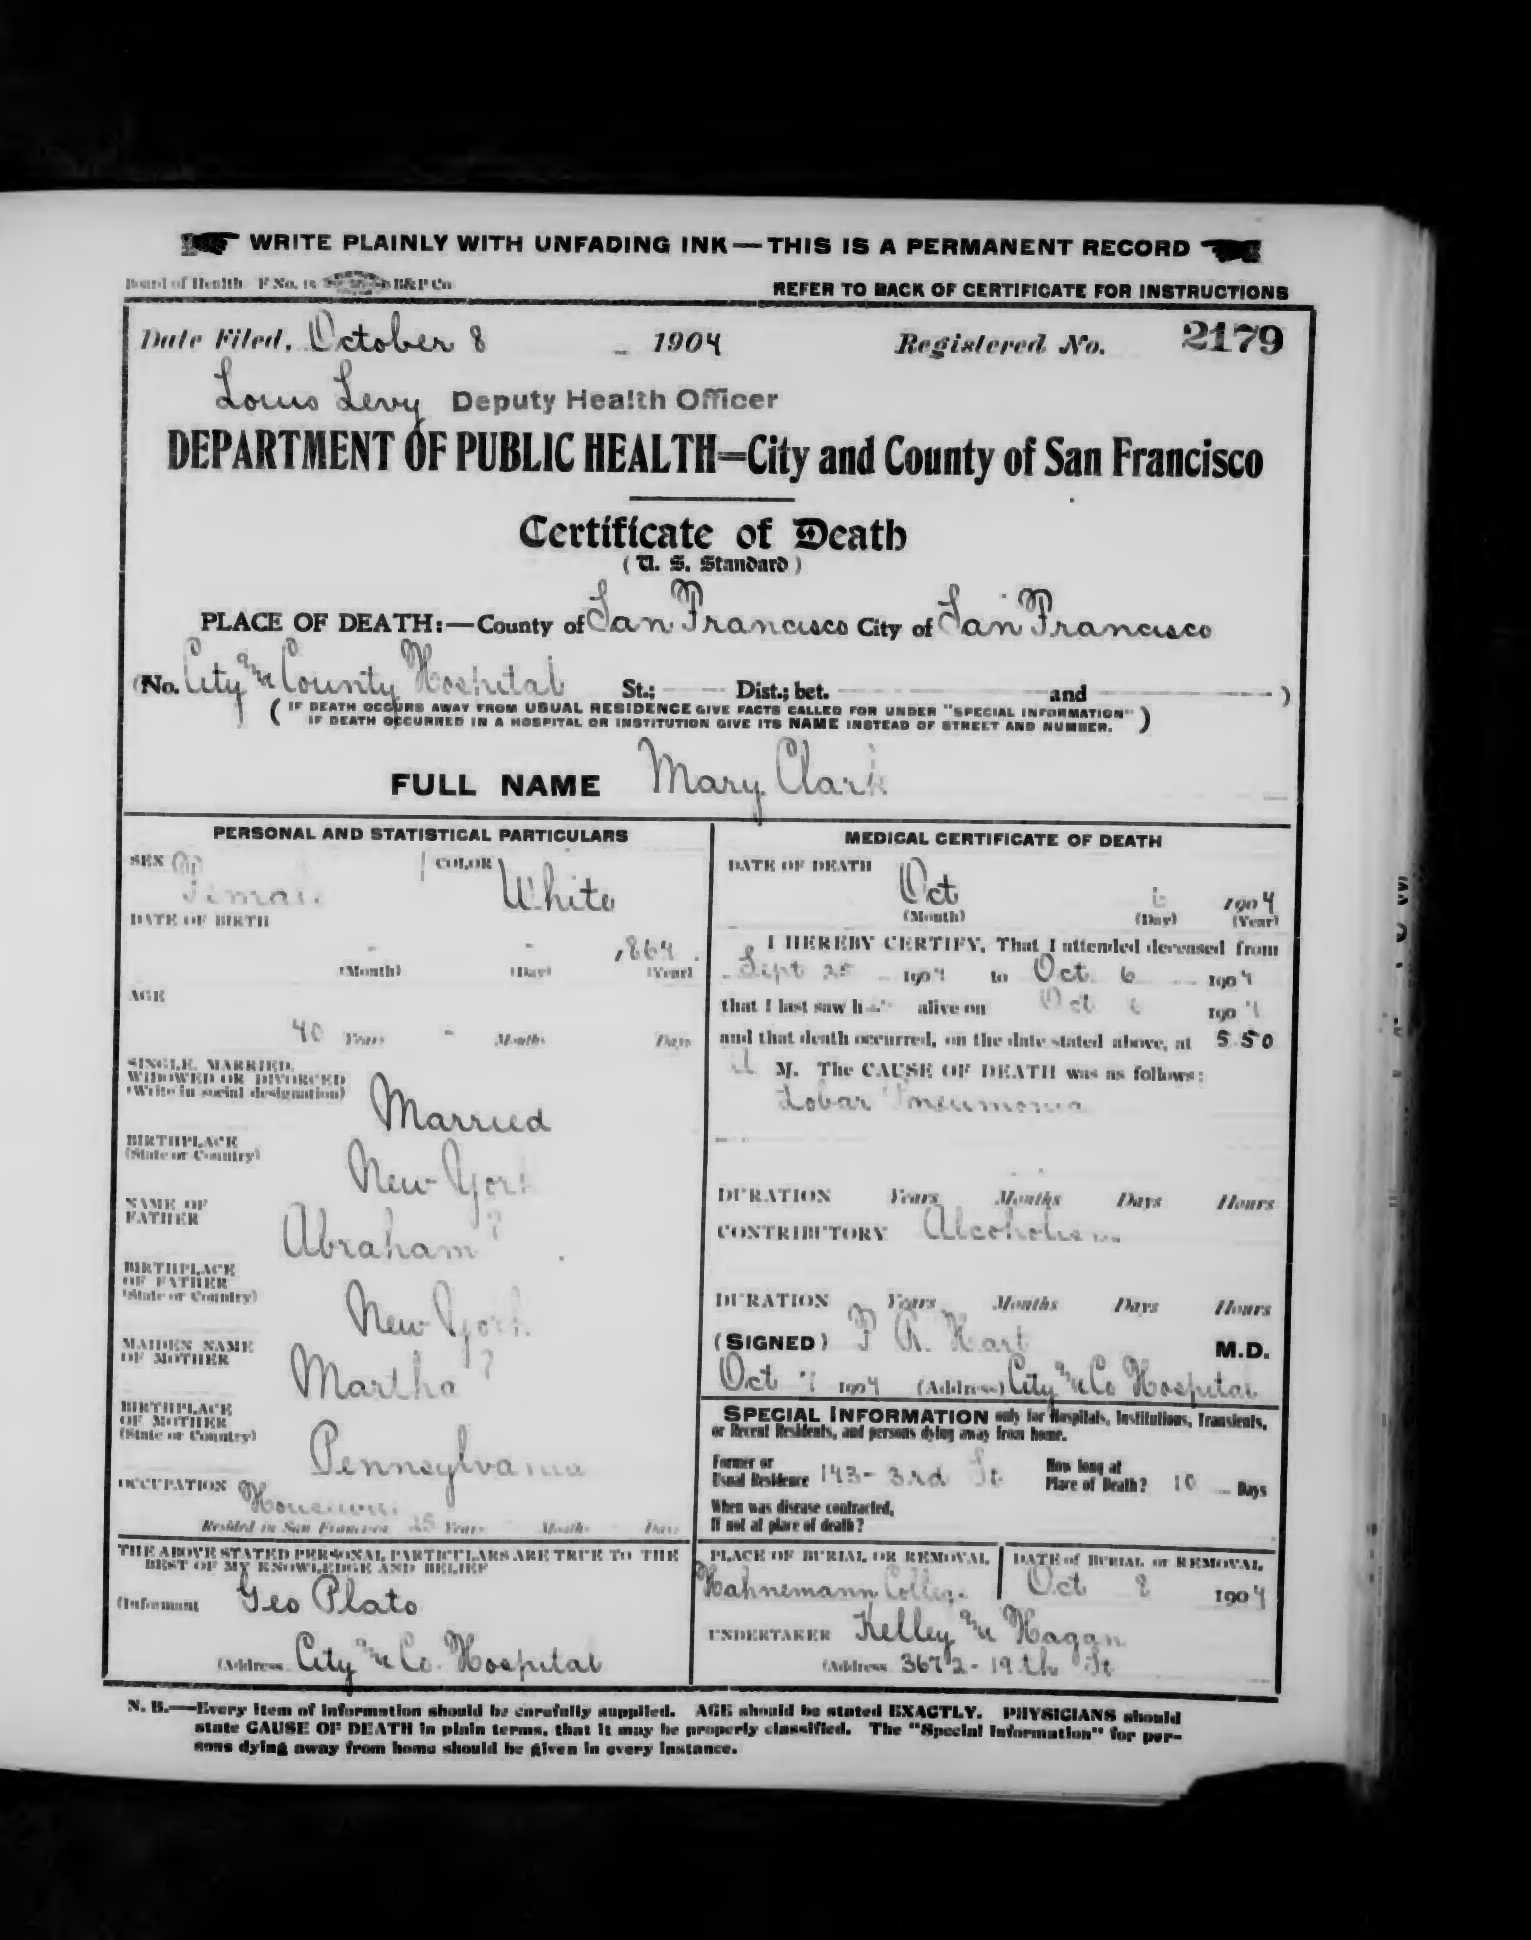 WRITE PLAINLY WITH UNFADING INK — THIS IS A PERMANENT RECORD
Board of Health F No. 15 B&P Co
REFER TO BACK OF CERTIFICATE FOR INSTRUCTIONS
Date Filed, October 8 1904 Registered No. 2179
Louis Levy Deputy Health Officer
DEPARTMENT OF PUBLIC HEALTH=City and County of San Francisco
Certificate of Death
(U. S. Standard)
PLACE OF DEATH:—County of San Francisco City of San Francisco
(No. City and County Hospital St.; Dist.; bet. and )
( IF DEATH OCCURS AWAY FROM USUAL RESIDENCE GIVE FACTS CALLED FOR UNDER "SPECIAL INFORMATION"
IF DEATH OCCURRED IN A HOSPITAL OR INSTITUTION GIVE ITS NAME INSTEAD OF STREET AND NUMBER. )
FULL NAME Mary Clark
PERSONAL AND STATISTICAL PARTICULARS
SEX Female COLOR White
DATE OF BIRTH
- - 1864
(Month) (Day) (Year)
AGE
40 Years - Months Days
SINGLE, MARRIED,
WIDOWED OR DIVORCED
(Write in social designation) Married
BIRTHPLACE
(State or Country) New York
NAME OF
FATHER Abraham ?
BIRTHPLACE
OF FATHER
(State or Country) New York
MAIDEN NAME
OF MOTHER Martha ?
BIRTHPLACE
OF MOTHER
(State or Country) Pennsylvania
OCCUPATION Housewife
Resided in San Francisco 25 Years Months Days
THE ABOVE STATED PERSONAL PARTICULARS ARE TRUE TO THE
BEST OF MY KNOWLEDGE AND BELIEF
(Informant Geo Plato
(Address City and Co. Hospital
MEDICAL CERTIFICATE OF DEATH
DATE OF DEATH
Oct 6 1904
(Month) (Day) (Year)
I HEREBY CERTIFY, That I attended deceased from
Sept 25 1904 to Oct. 6 1904
that I last saw her alive on Oct 6 1904
and that death occurred, on the date stated above, at 5 50
M. The CAUSE OF DEATH was as follows:
Lobar Pneumonia
DURATION Years Months Days Hours
CONTRIBUTORY Alcoholism
DURATION Years Months Days Hours
(SIGNED) P. A. Hart M.D.
Oct 7 1904 (Address) City and Co Hospital
SPECIAL INFORMATION only for Hospitals, Institutions, Transients,
or Recent Residents, and persons dying away from home.
Former or
Usual Residence 143- 3rd St
How long at
Place of Death? 10 Days
When was disease contracted,
If not at place of death?
PLACE OF BURIAL OR REMOVAL
Hahnemann College
DATE of BURIAL or REMOVAL
Oct 8 1904
UNDERTAKER Kelley and Hagan
(Address 3672 - 19th St
N. B.—Every item of information should be carefully supplied. AGE should be stated EXACTLY. PHYSICIANS should
state CAUSE OF DEATH in plain terms, that it may be properly classified. The "Special Information" for per-
sons dying away from home should be given in every instance.